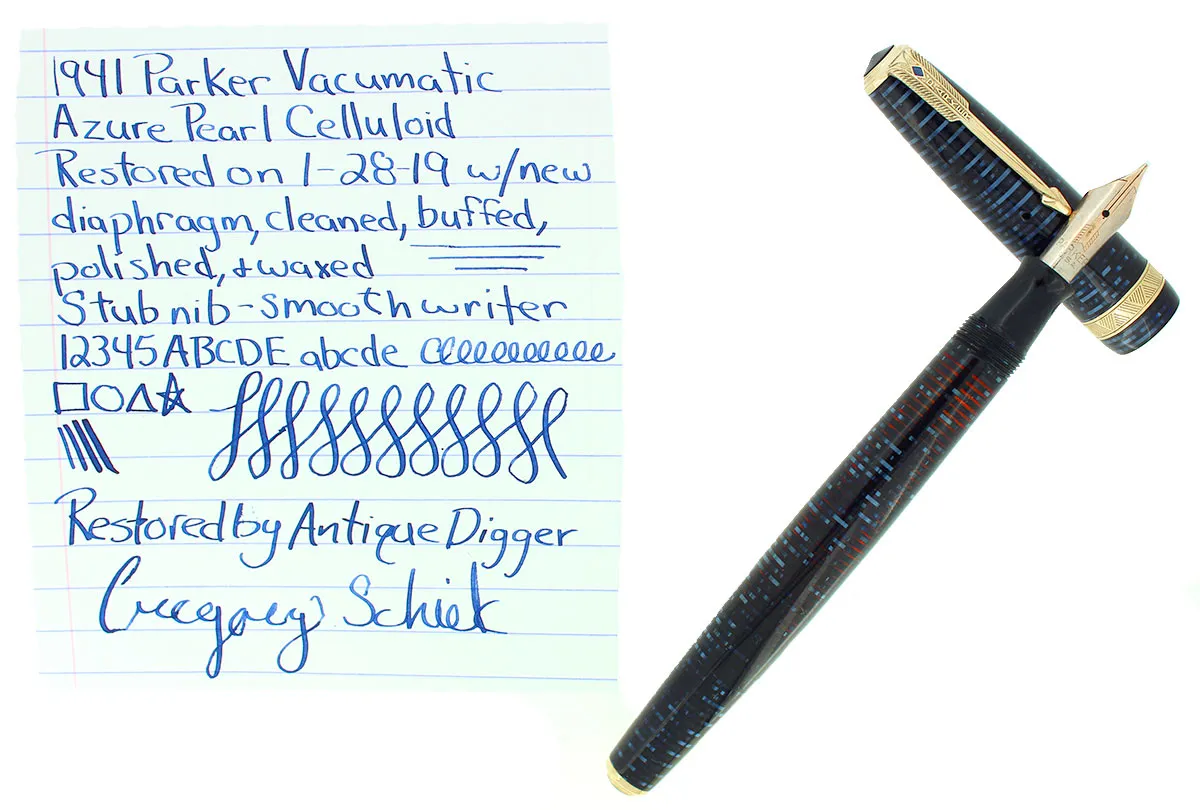 1941 Parker Vacumatic
Azure Pearl Celluloid
Restored on 1-28-19 w/new
diaphragm, cleaned, buffed,
polished, + waxed
Stub nib - smooth writer
12345 ABCDE abcde
Restored by Antique Digger
Gregory